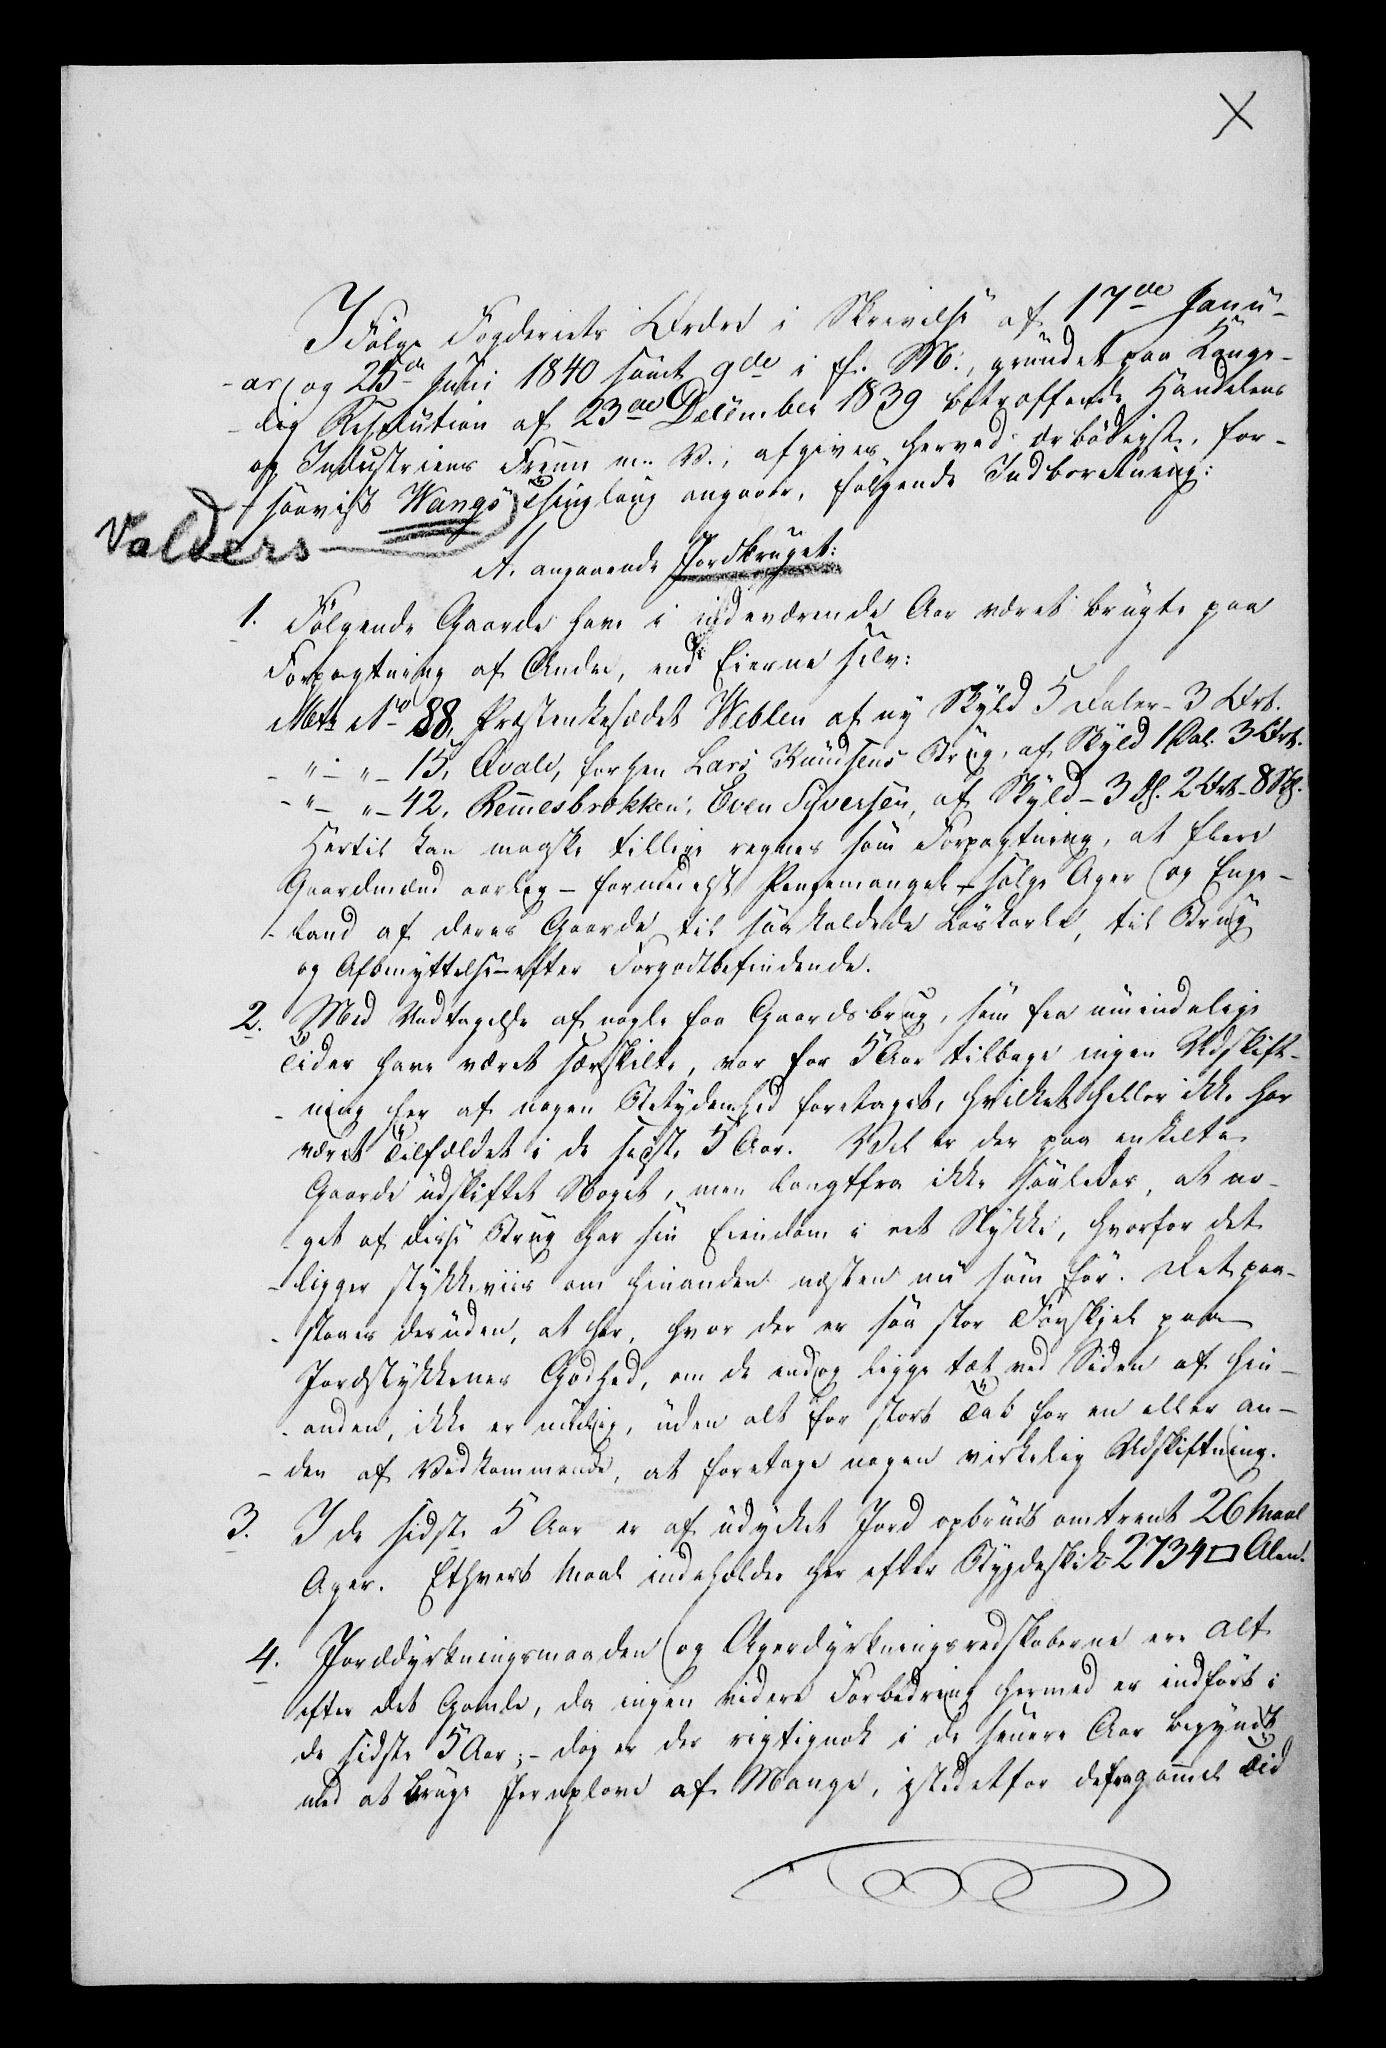 X
I Følge Fogderiets Ordre i Skrivelse af 17de Janu-
-ar og 25de Juni 1840 samt 9de i f. M., grundet paa Konge-
-lig Resolution af 23de December 1839 betræffende Handelens
og Industriens Fremme m. V., afgives herved ærbødigst, for-
-saavidt Wangs Thinglaug angaaer, følgende Indberetning:
Valders
A. angaaende Jordbruget:
1. Følgende Gaarde have i indeværende Aar været brugte paa
Forpagtning af Andre, end Eierne selv:
Matr No 88, Præsteenkesædet Weblen af ny Skyld 5 Daler - 3 Ort.
- " - " - 15, Qvale, forhen Lars Knudsens Brug, af Skyld 1 Dal. 3 Ort.
- " - " - 42, Remmesbrøkken, Even Syversen, af Skyld - 3 Dl. 2 Ort - 8 Sk.
Hertil kan maaske tillige regnes som Forpagtning, at flere
Gaardmænd aarlig - formedelst Pengemangel - sælge Ager og Enge-
-land af deres Gaarde til saakaldede Løskarle, til Brug
og Afbenyttelse efter Forgodtbefindende.
2. Med Undtagelse af nogle faa Gaardsbrug, som fra umindelige
Tider have været særskilte, var for 5 Aar tilbage ingen Udskift-
-ning her af nogen Betydenhed foretaget, hvilket heller ikke har
været Tilfældet i de sidste 5 Aar. Vel er der paa enkelte
Gaarde udskiftet Noget, men langtfra ikke saaledes, at no-
-get af disse Brug har sin Eiendom i eet Stykke, hvorfor det
-ligger stykkeviis om hinanden næsten nu som før. Det paa-
-staaes desuden, at her, hvor der er saa stor Forskjel paa
Jordstykkernes Godhed, om de endog ligge tæt ved Siden af hin-
-anden, ikke er muelig, uden alt for stort Tab for en eller an-
-den af Vedkommende, at foretage nogen virkelig Udskiftning.
3. I de sidste 5 Aar er af udyrket Jord opbrudt omtrent 26 Maal
Ager. Ethvert Maal indeholder her efter Bygdeskik 2734 □ Alen.
4. Jorddyrkningsmaaden og Agerdyrkningsredskaberne ere alt
efter det Gamle, da ingen videre Forbedring hermed er indført i
de sidste 5 Aar; - dog er der rigtignok i de senere Aar begyndt
med at bruge Jernplove af Mange, istedetfor de fra gammel Tid